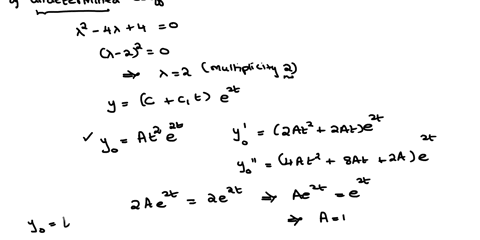 λ² - 4λ + 4 = 0
(λ-2)² = 0
⇒ λ = 2 (multiplicity 2)
y = (C + C₁t) e^{2t}
✓ y₀ = At² e^{2t} y₀' = (2At² + 2At) e^{2t}
y₀'' = (4At² + 8At + 2A) e^{2t}
2A e^{2t} = 2e^{2t} ⇒ Ae^{2t} = e^{2t}
⇒ A = 1
y₀ =